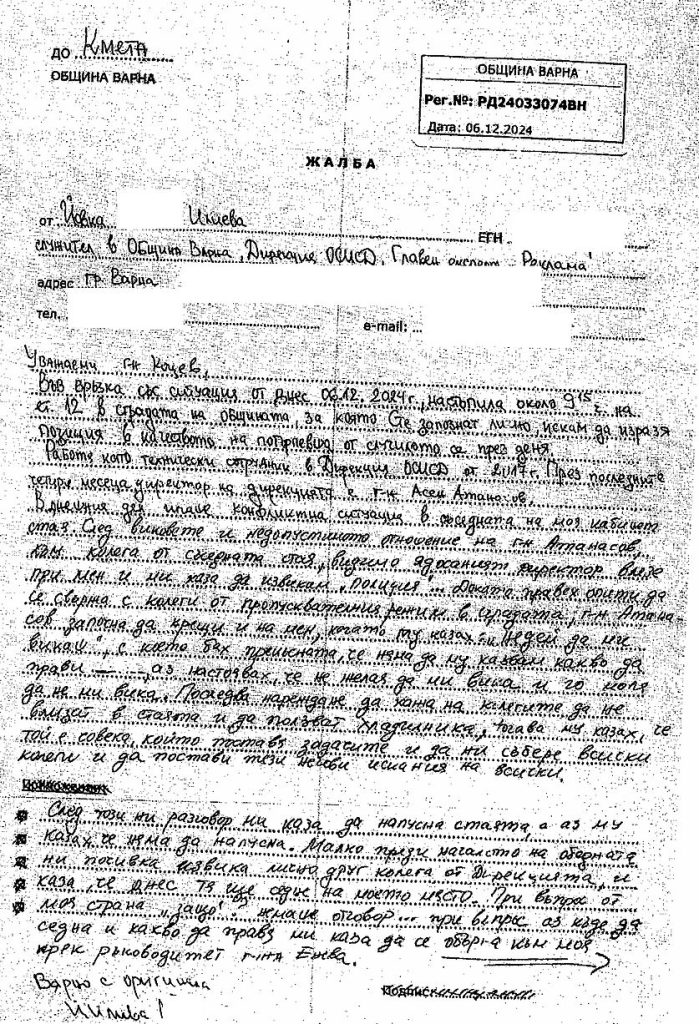 ДО Кмета
ОБЩИНА ВАРНА
ОБЩИНА ВАРНА
Рег.№: РД24033074ВН
Дата: 06.12.2024
ЖАЛБА
от Йовка Илиева ЕГН
служител в Община Варна, Дирекция ОСИСД, Главен експерт "Реклама"
адрес гр. Варна
тел. e-mail:
Уважаеми г-н Коцев,
Във връзка със ситуация от днес 06.12.2024г., настъпила около 9¹⁵ ч. на
ет. 12 в сградата на общината, за която сте запознат лично, искам да изразя
позиция в качеството на потърпевша от случилото се през деня.
Работя като технически сътрудник в Дирекция ОСИСД от 2017г. През последните
четири месеца директор на дирекцията е г-н Асен Атанасов.
В днешния ден имаше конфликтна ситуация в съседната на моя кабинет
стая. След виковете и недопустимото отношение на г-н Атанасов,
към колега от съседната стая, видимо ядосаният директор влезе
при мен и ми каза да извикам "Полиция". Докато правех опити да
се свържа с колеги от пропускателния режим в сградата, г-н Атана-
сов започна да крещи и на мен, когато му казах: "Недей да ми
викаш", с което бях прекъсната, че няма да му казвам какво да
прави, аз настоявах, че не желая да ми вика и го моля
да не ми вика. Последва нареждане да кажа на колегите да не
влизат в стаята и да ползват хладилника, тогава му казах, че
той е човека, който поставя задачите и да си събере всички
колеги и да постави тези негови искания на всички.
След този ни разговор ми каза да напусна стаята, а аз му
казах, че няма да напусна. Малко преди началото на обедната
ни почивка извика лично друг колега от Дирекцията, и
каза, че днес тя ще седне на моето място. При въпрос от
моя страна "защо?" нямаше отговор... при въпрос аз къде да
седна и какво да правя ми каза да се обърна към моя
пряк ръководител г-жа Енева.
Вярно с оригинала